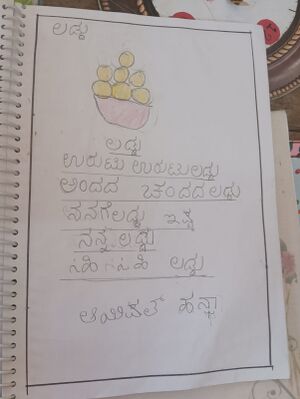 ಲಡ್ಡು
ಲಡ್ಡು
ಉರುಟು ಉರುಟುಲಡ್ಡು
ಅಂದದ ಚಂದದ ಲಡ್ಡು
ನನಗೆಲಡ್ಡು ಇಷ್ಟ
ನನ್ನ ಲಡ್ಡು
ಸಿಹಿ ಸಿಹಿ ಲಡ್ಡು